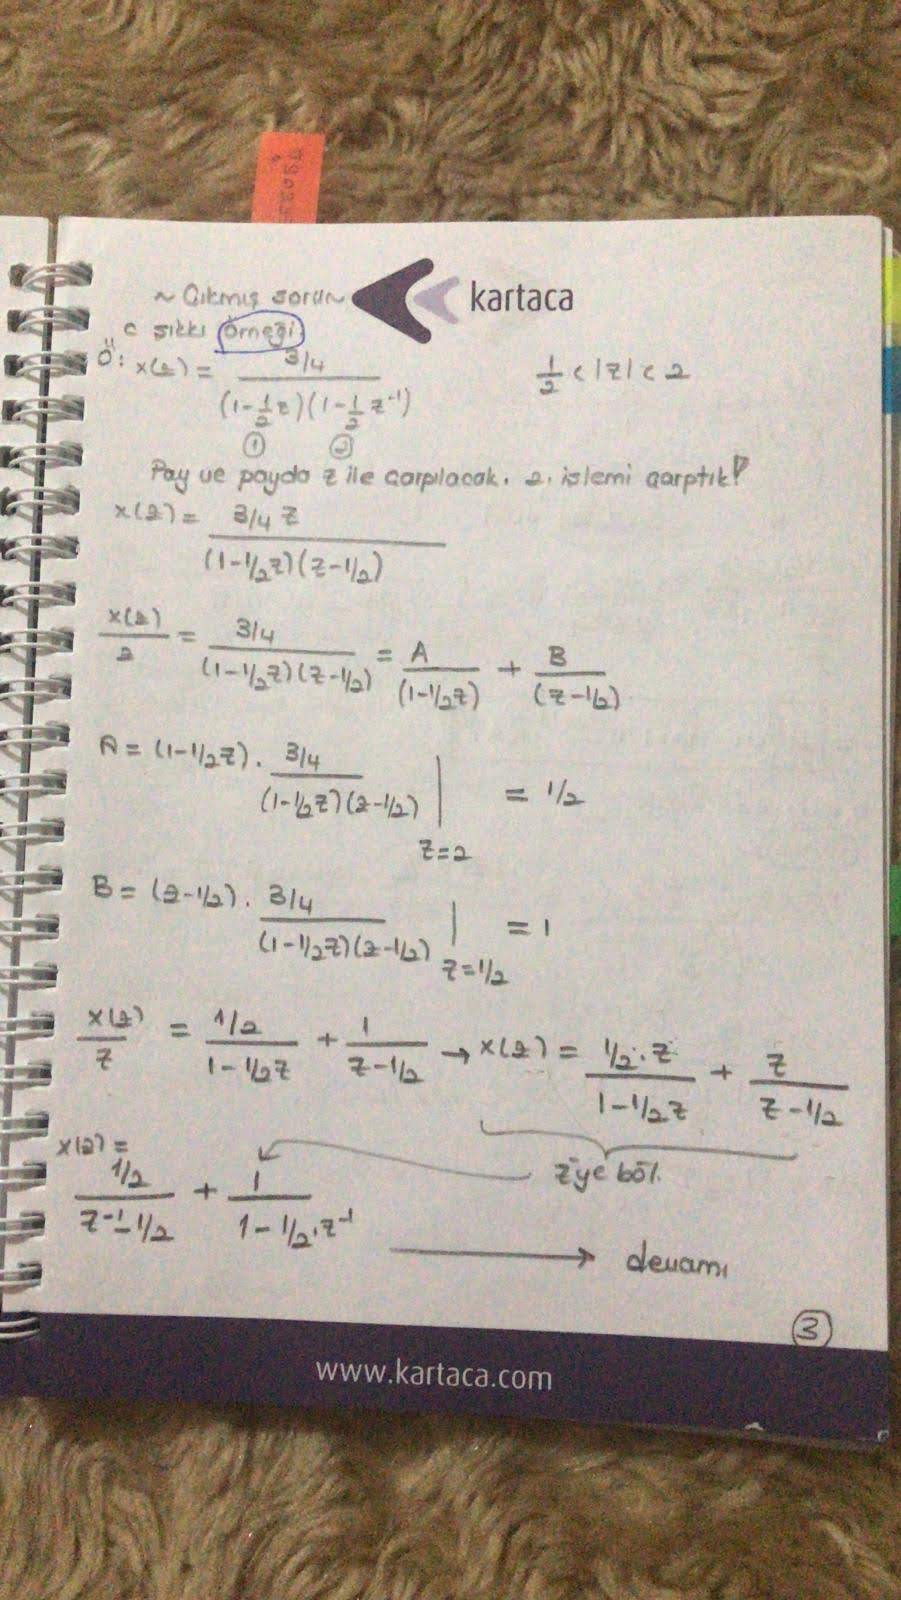 ~ Çıkmış sorun~
kartaca
c şıkkı örneği.
Ö: x(z) = 3/4 / (1-1/2 z)(1-1/2 z⁻¹) 1/2 < |z| < 2
① ②
Pay ve payda z ile çarpılacak. 2. işlemi çarptık!
x(z) = 3/4 z / (1-1/2z)(z-1/2)
x(z)/z = 3/4 / (1-1/2z)(z-1/2) = A / (1-1/2z) + B / (z-1/2)
A = (1-1/2z) . 3/4 / (1-1/2z)(z-1/2) | z=2 = 1/2
B = (z-1/2) . 3/4 / (1-1/2z)(z-1/2) | z=1/2 = 1
x(z)/z = 1/2 / 1-1/2z + 1 / z-1/2 → x(z) = 1/2.z / 1-1/2z + z / z-1/2
z'ye böl.
x(z) = 1/2 / z⁻¹-1/2 + 1 / 1-1/2.z⁻¹ → devamı
3
www.kartaca.com